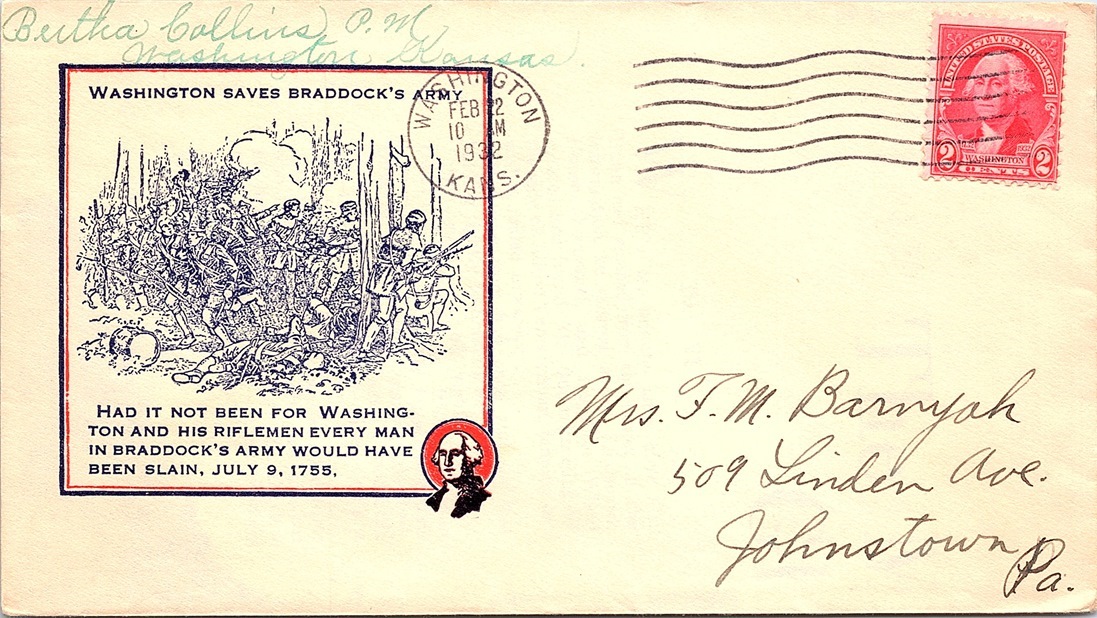 Bertha Collins, P.M.
Washington, Kansas.
WASHINGTON SAVES BRADDOCK'S ARMY
WASHINGTON
FEB 22
10 AM
1932
KANS.
UNITED STATES POSTAGE
2 WASHINGTON 2
HAD IT NOT BEEN FOR WASHING-
TON AND HIS RIFLEMEN EVERY MAN
IN BRADDOCK'S ARMY WOULD HAVE
BEEN SLAIN, JULY 9, 1755.
Mrs. F. M. Barnyak
509 Linden Ave.
Johnstown,
Pa.